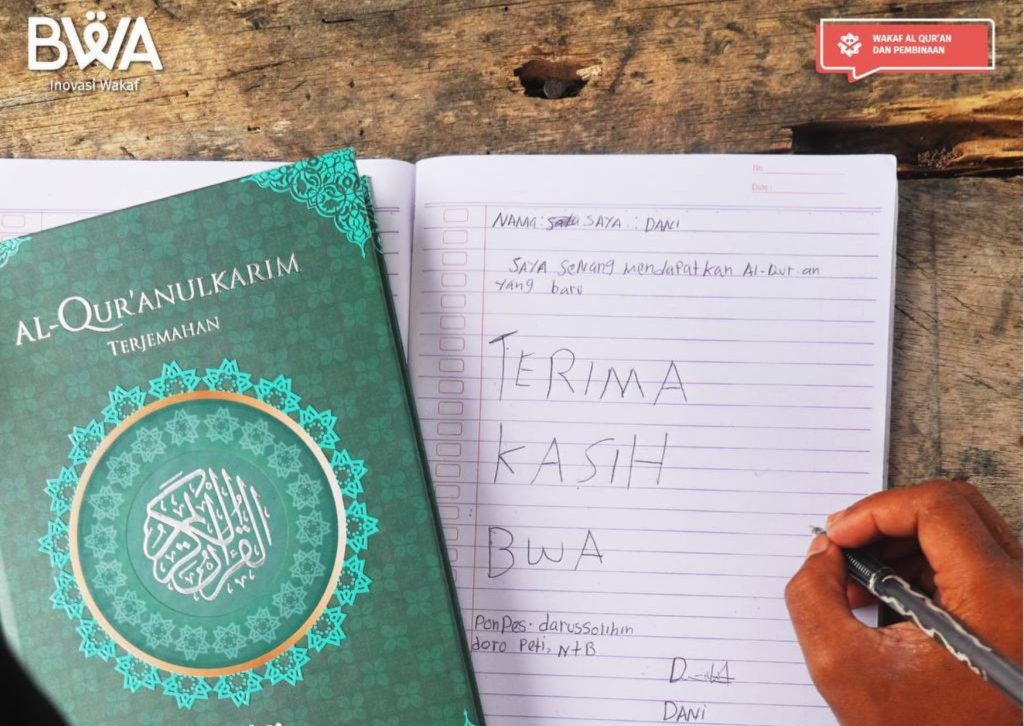 BWA
Inovasi Wakaf
WAKAF AL QUR'AN
DAN PEMBINAAN
AL-QUR'ANULKARIM
TERJEMAHAN
القرآن الكريم
No.
Date :
NAMA: SAYA : DANI
SAYA SeNang mendapatkan Al-Qur-an
yang baru
TERIMA
KASIH
BWA
PonPes. darussolihin
doro Peti, NtB
DANI